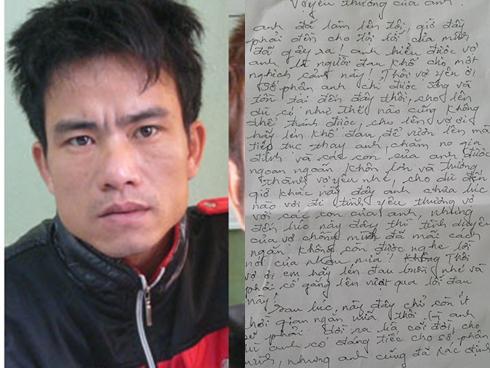 Vợ yêu thương của anh!
anh đã làm lên tội, giờ đây
phải đền cho tội lỗi của mình
đã gây ra! anh hiểu được vợ
anh là người đau khổ cho một
nghịch cảnh này! Thôi vợ yêu ơi!
Số phận anh chỉ được sống và
tồn tại đến đây thôi, cho lên
dù có như thế nào cũng không
thể tránh được, cho lên vợ ơi
hãy lên khổ đau để vươn lên mà
tiếp tục thay anh, chăm no gia
đình và các con của anh được
ngoan ngoãn khôn lớn và trưởng
thành vợ yêu nhé, cho dù đến
giờ khắc này đây anh chưa lúc
nào vơi đi tình yêu thương vợ
với các con của anh, nhưng
đến lúc này đây thì tình duyên
của vợ chồng mình đã mãi cách
ngăn không còn được nghe lời
nói của nhau nữa! Thôi
vợ ơi em hãy lên đau buồn nhé và
phải cố gắng lên vượt qua lỗi đau
này!
Sau lúc này đây chỉ còn ít
thời gian ngắn nữa thôi là anh
phải rời xa cõi đời, cho
dù anh có đáng tiếc cho số phận
mình, nhưng anh cũng đã xác định